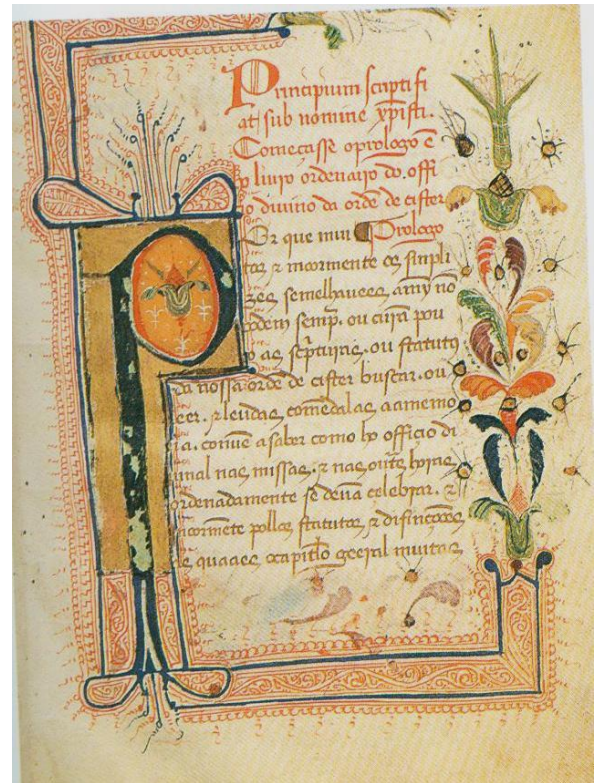 Principium scripti fi
at sub nomine xpisti.
Começasse oprologo ẽ
o liuro ordenairo do. offi
io diuino da ordẽ de cister
Or que mui Prologo
tos ⁊ moormente os simpli
zes semelhauees amy nõ
odem semp̃. ou curã pou
o as sc̃pturas. ou statutos
da nossa ordẽ de cister buscar. ou
leer. ⁊ leudas comẽdalas aamemo
ia. conuẽ asaber como ho officio di
uinal nas missas. ⁊ nas outs̃ horas
ordenadamente se deuã celebrar. ⁊
moormẽte pollos statutos ⁊ difinçoões
os quaaes ocapitl̃o geeral muitas